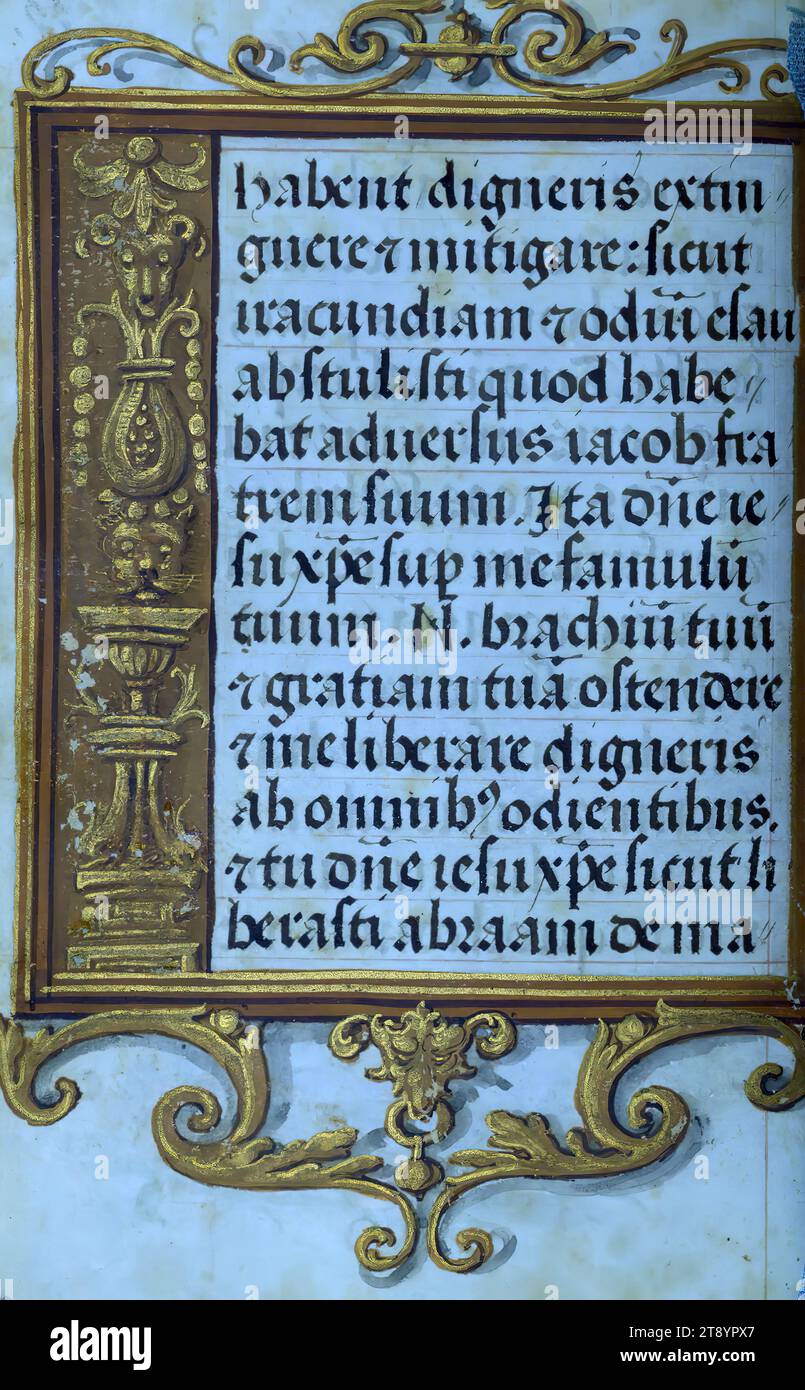 habent digneris extin
guere ⁊ mitigare: sicut
iracundiam ⁊ odiū esau
abstulisti quod habe
bat aduersus iacob fra
trem suum. Ita dñe ie
su xp̄e sup̄ me famulū
tuum. N. brachiū tuū
⁊ gratiam tuā ostendere
⁊ me liberare digneris
ab omnibꝰ odientibus.
⁊ tu dñe iesu xp̄e sicut li
berasti abraam de ma
alamy
Image ID: 2T8YPX7
www.alamy.com